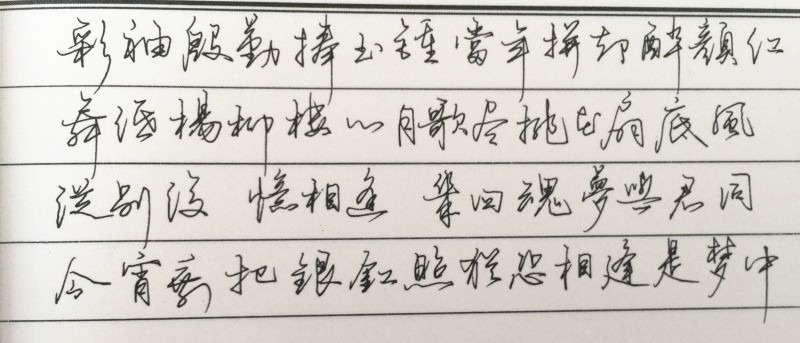 彩袖殷勤捧玉鍾當年拼却醉顔红
舞低楊柳樓心月歌尽桃花扇底風
從别後 憶相逢 幾回魂夢與君同
今宵剩把銀釭照猶恐相逢是梦中